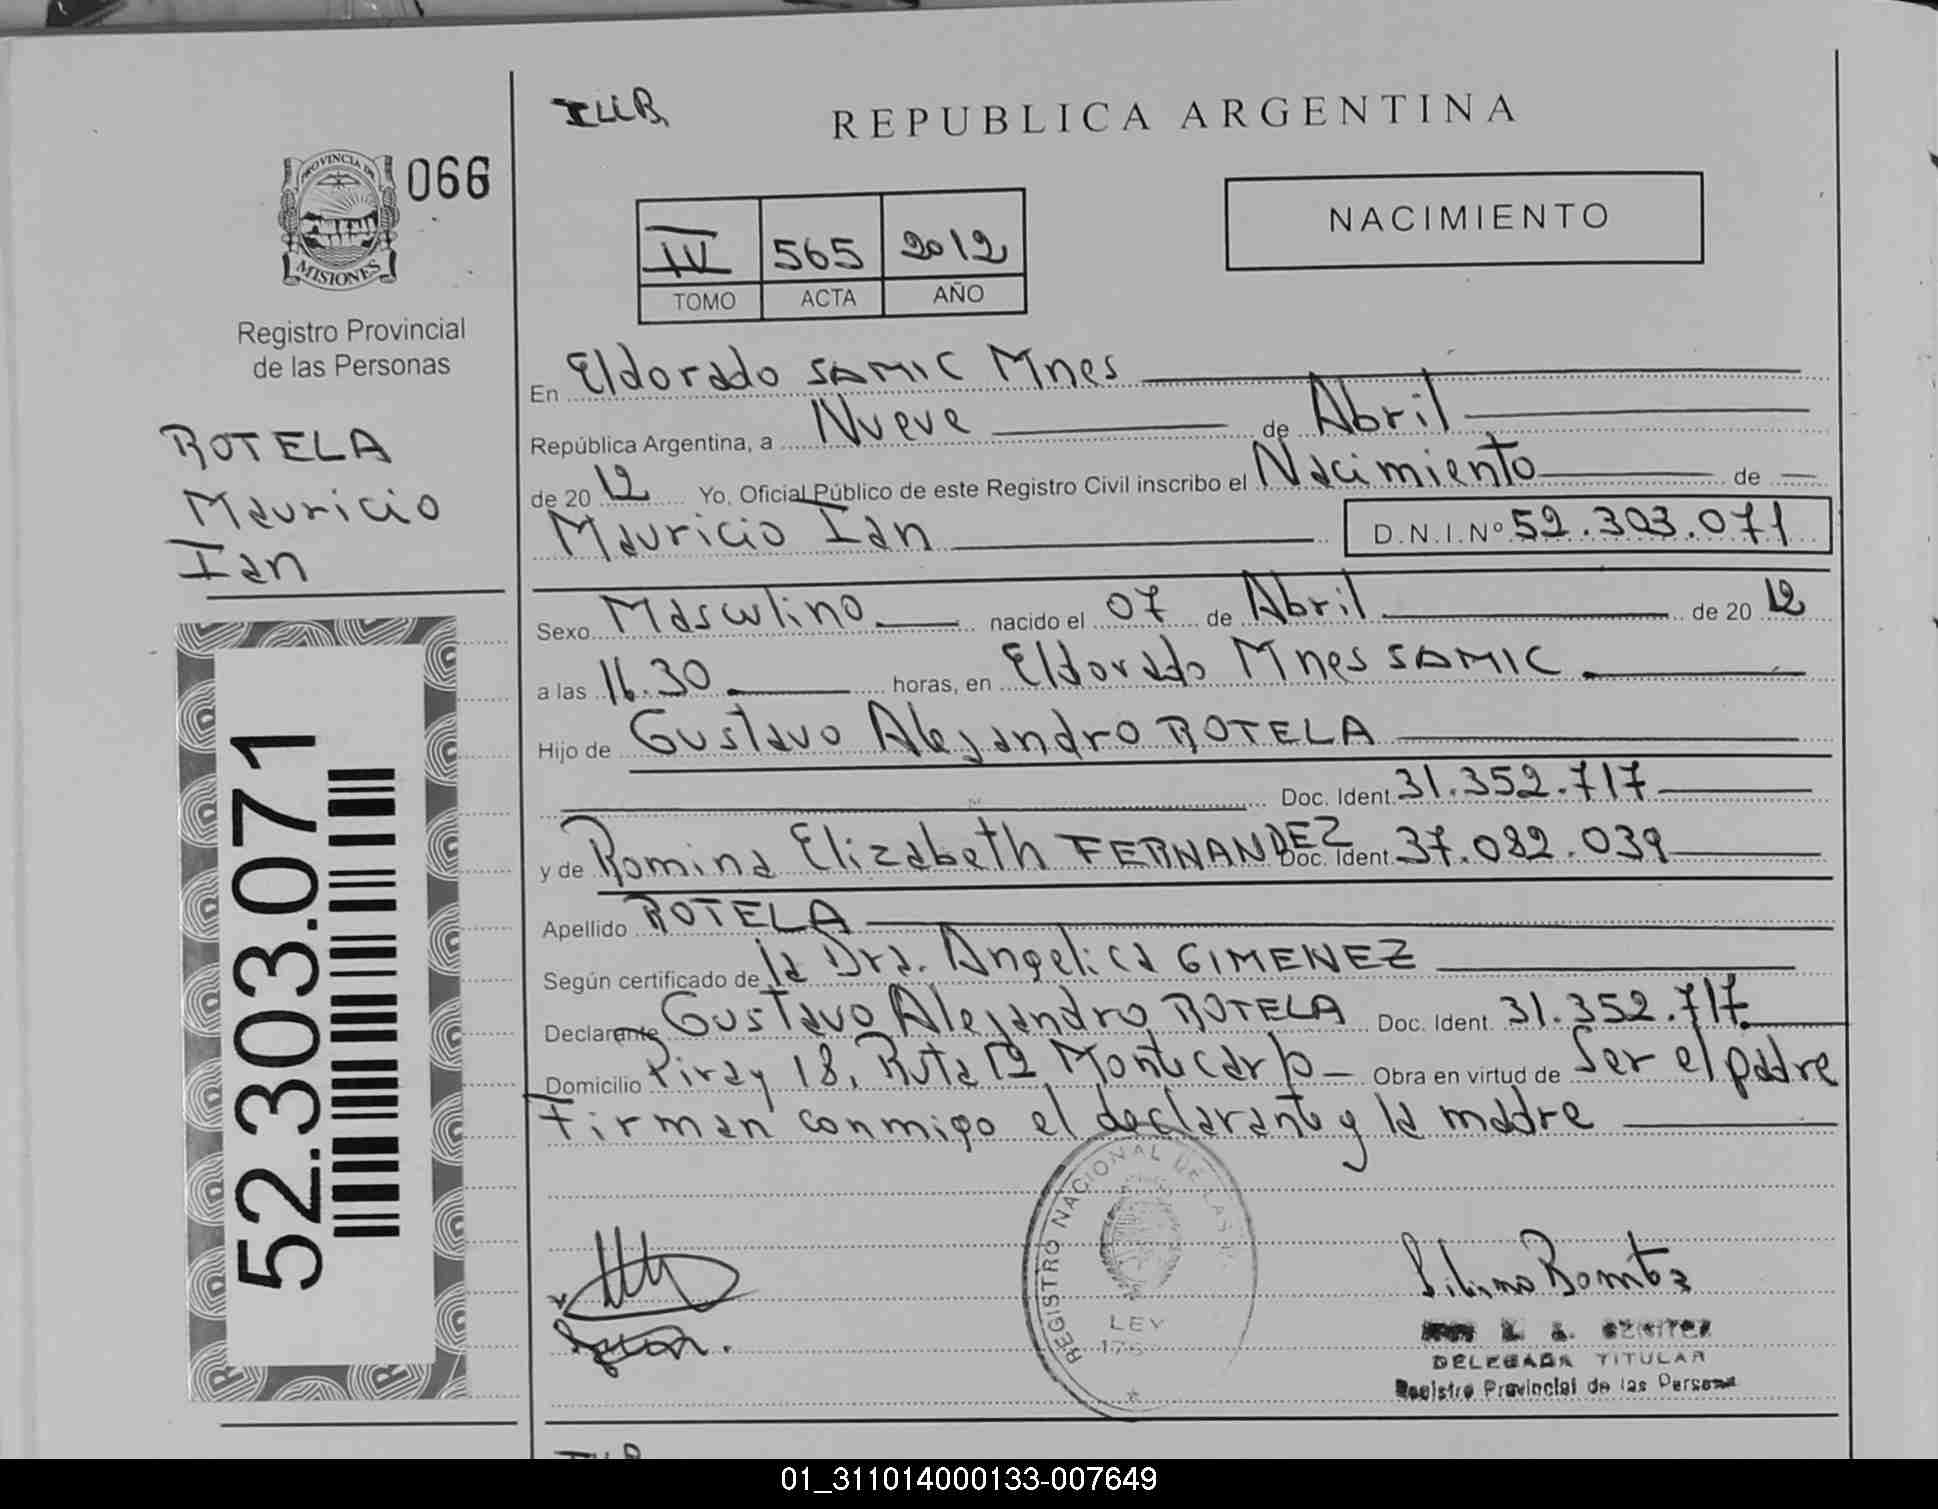 REPUBLICA ARGENTINA
PROVINCIA DE
MISIONES
066
Registro Provincial
de las Personas
ROTELA
Mauricio
Ian
52.303.071
IV 565 2012
TOMO ACTA AÑO
NACIMIENTO
En Eldorado SAMIC Mnes
República Argentina, a Nueve de Abril
de 2012 Yo, Oficial Público de este Registro Civil inscribo el Nacimiento de
Mauricio Ian D.N.I.Nº 52.303.071
Sexo Masculino nacido el 07 de Abril de 2012
a las 16.30 horas, en Eldorado Mnes SAMIC
Hijo de Gustavo Alejandro ROTELA
Doc. Ident. 31.352.717
y de Romina Elizabeth FERNANDEZ Doc. Ident. 37.082.039
Apellido ROTELA
Según certificado de la Dra. Angelica GIMENEZ
Declarante Gustavo Alejandro ROTELA Doc. Ident. 31.352.717
Domicilio Piray 18, Ruta 12 Montecarlo Obra en virtud de Ser el padre
Firman conmigo el declarante y la madre
REGISTRO NACIONAL DE LAS
LEY
BENITEZ
DELEGADA TITULAR
Registro Provincial de las Personas
01_311014000133-007649